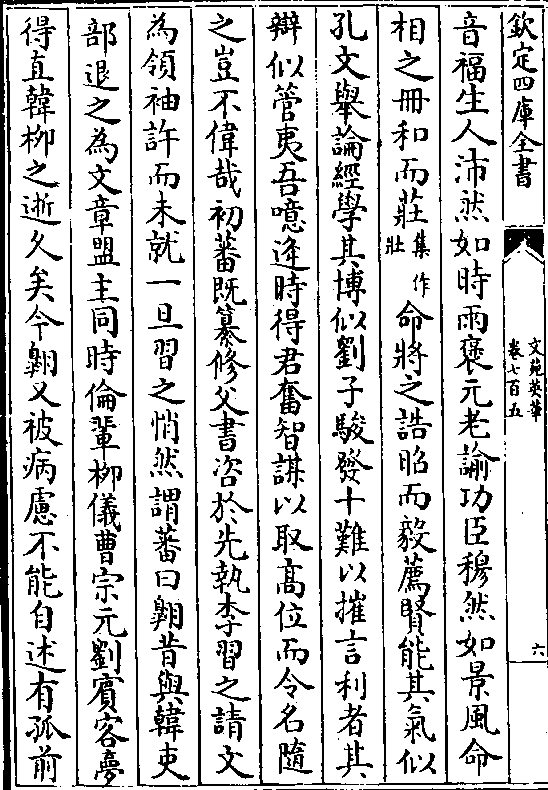 欽定四庫全書
文苑英華
卷七百五
六
音福生人沛然如時雨褒元老諭功臣穆然如景風命
相之冊和而莊集作壯命將之誥昭而毅薦賢能其氣似
孔文舉論經學其博似劉子駿發十難以摧言利者其
辯似管夷吾噫逢時得君奮智謀以取高位而令名隨
之豈不偉哉初蕃既纂修父書咨於先執李習之請文
為領袖許而未就一旦習之悄然謂蕃曰翺昔與韓吏
部退之為文章盟主同時倫輩柳儀曹宗元劉賓客夢
得直韓柳之逝久矣今翺又被病慮不能自述有孤前